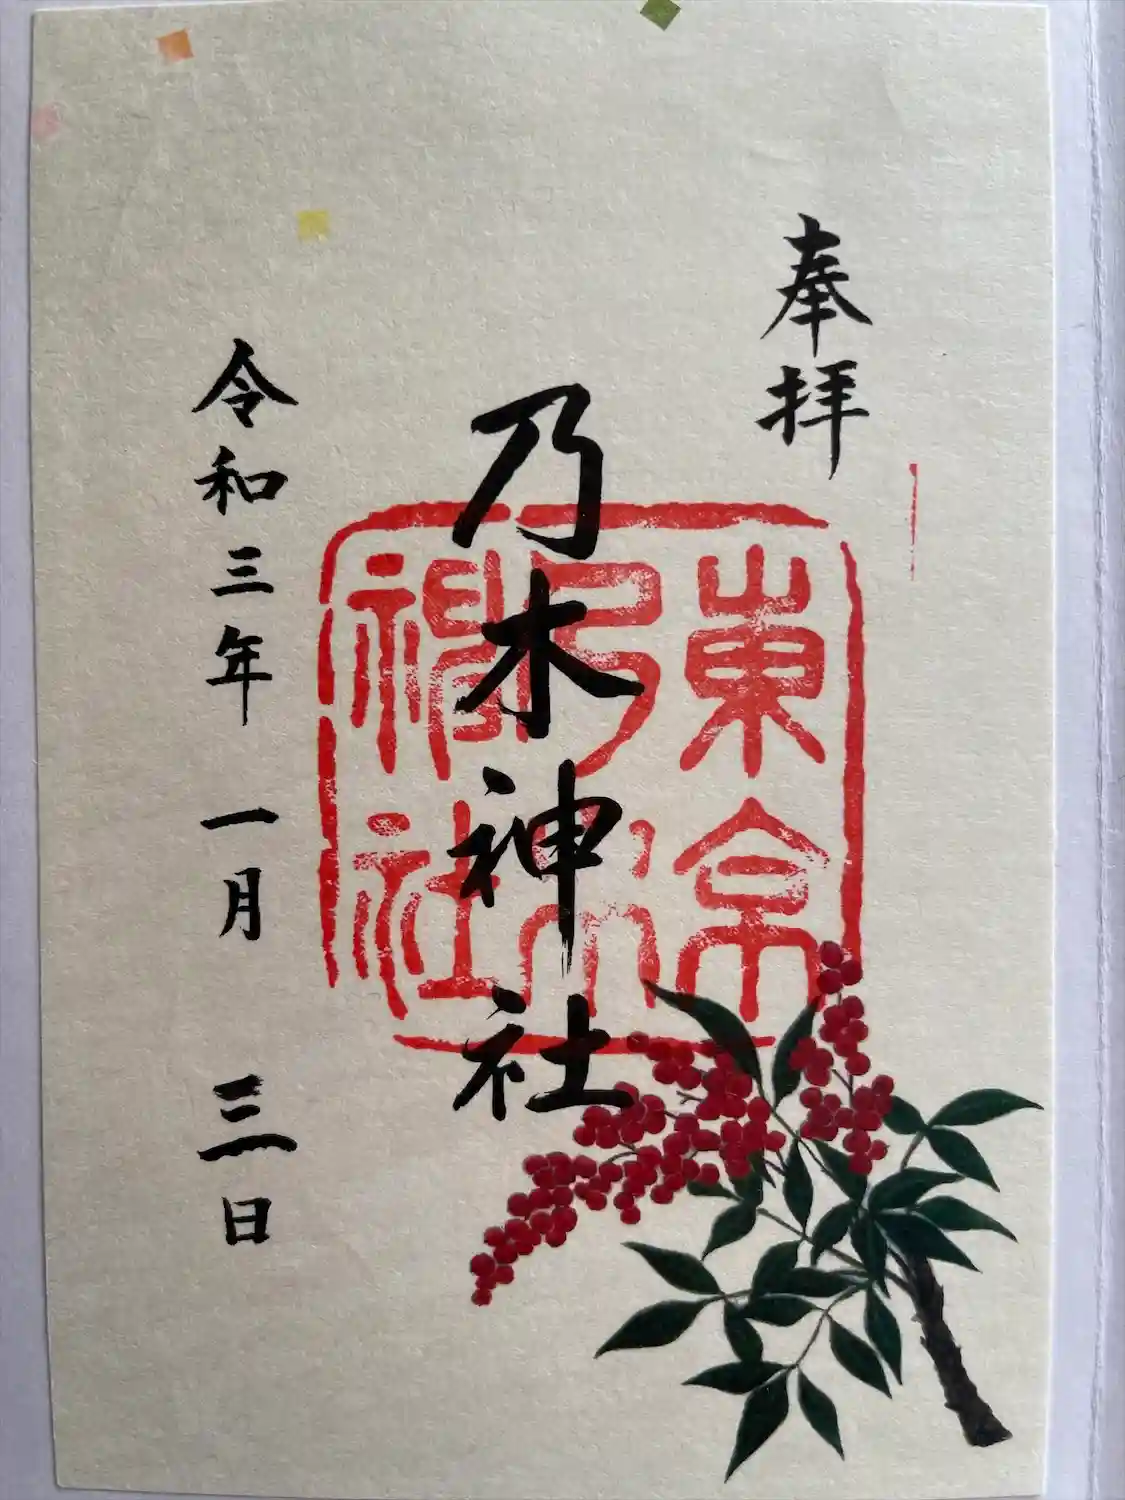 奉拝
東京
乃木
神社
乃木神社
令和三年一月三日